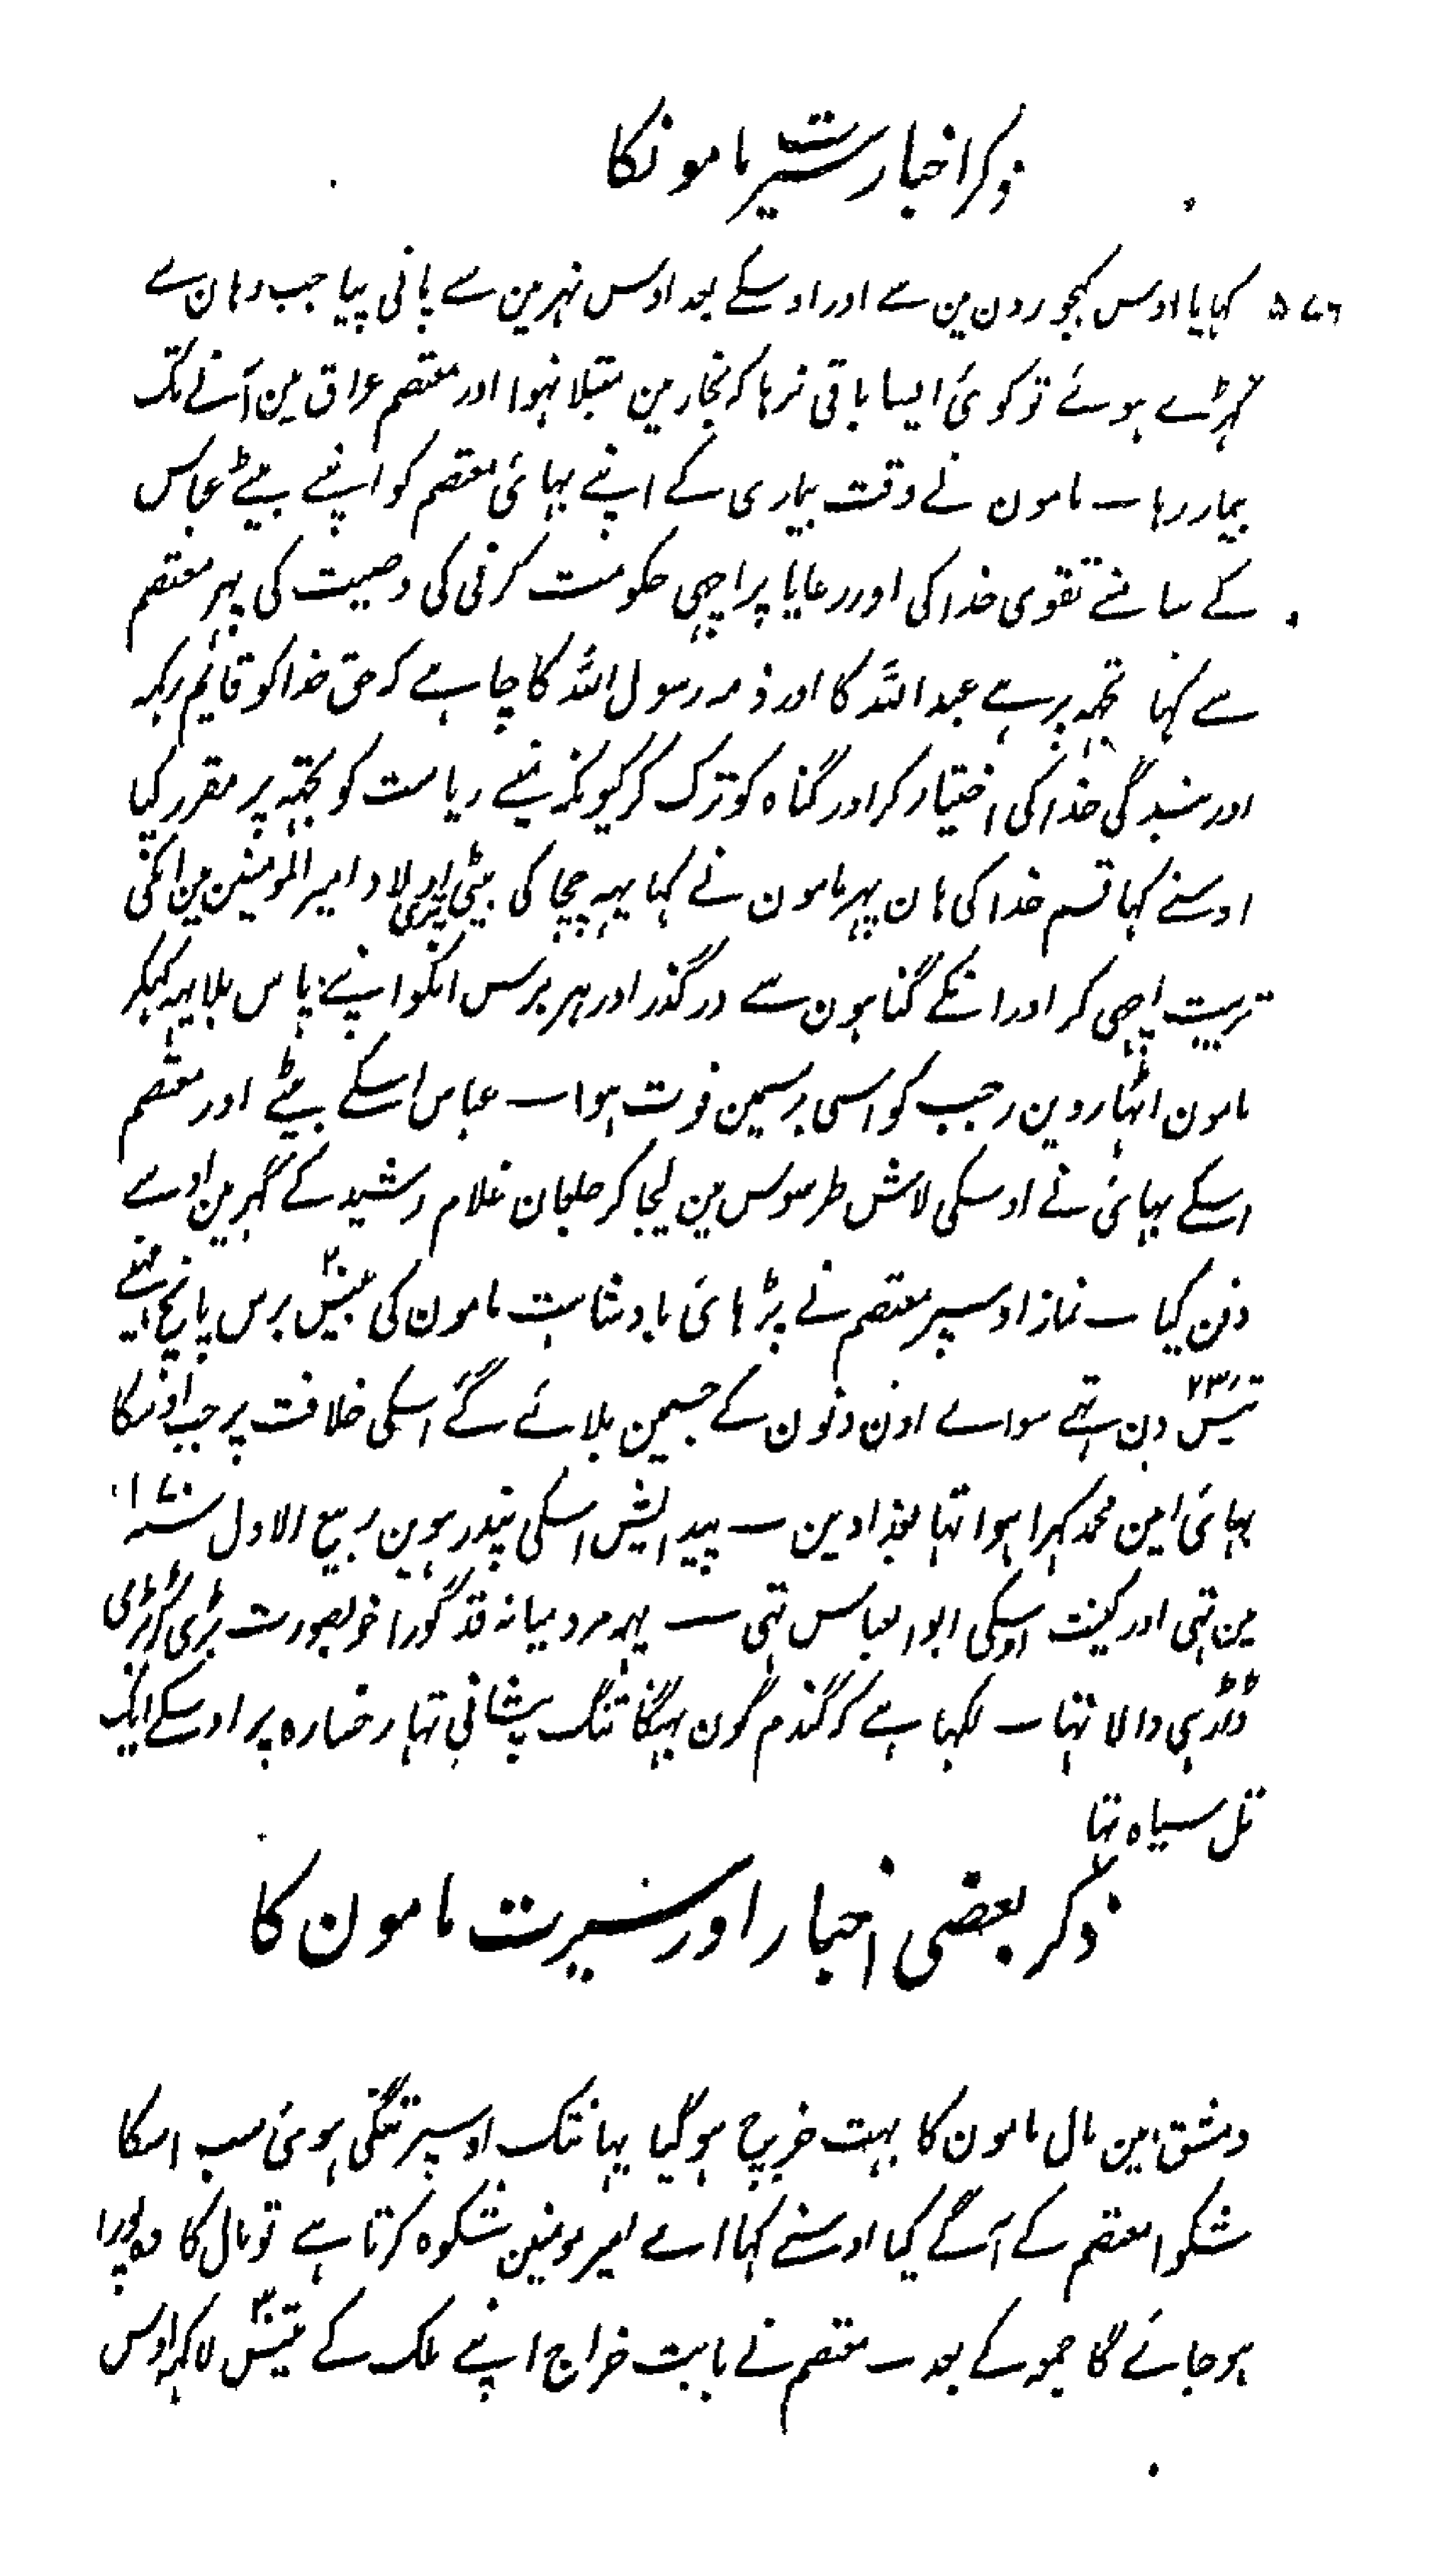 ذکر اخبار سیرت مامونکا
۵۷۶ کہایا اوس کہجورون مین سے اور اوسکے بعد اوس نہر مین سے پانی پیا جب وہان سے
کہڑے ہوئے تو کوئی ایسا باقی نرہا کہ بخار مین مبتلا نہوا اور معتصم عراق مین آنے تک
بیمار رہا ـ مامون نے وقت بیماری کے اپنے بہائی معتصم کو اپنے بیٹے عباس
کے سامنے تقوی خدا کی اور رعایا پر اچہی حکومت کرنی کی وصیت کی پہر معتصم
سے کہا تجہہ پر ہے عہد اللہ کا اور ذمہ رسول اللہ کا چاہے کہ حق خدا کو قایم رکہہ
اور بندگی خدا کی اختیار کر اور گناہ کو ترک کر کیونکہ مینے ریاست کو تجہہ پر مقرر کیا
اوسنے کہا قسم خدا کی ہان پہر مامون نے کہا یہہ چچا کی بیٹی اولاد امیر المومنین مین انکی
تربیت اچہی کر اور انکے گناہون سے درگذر اور ہر برس انکو اپنے پاس بلا یہہ کہکر
مامون اٹہاروین رجب کو اسی برسمین فوت ہوا ـ عباس اسکے بیٹے اور معتصم
اسکے بہائی نے اوسکی لاش طرسوس مین لیجا کر جلجان غلام رشید کے گہر مین اوسے
دفن کیا ـ نماز اوسپر معتصم نے پڑہائی بادشاہت مامون کی بیس۲۰ برس پانچ مہینے
تیئس۲۳ دن تہے سوائے اون دنون کے جسمین بلائے گئے اسکی خلافت پر جب اوسکا
بہائی امین محمد گہرا ہوا تہا بغداد مین ـ پیدایش اسکی پندرہوین ربیع الاول سنہ ۱۷۰
مین تہی اور کنیت اوسکی ابو العباس تہی ـ یہہ مرد میانہ قد گورا خوبصورت بڑی
ڈاڑہی والا تہا ـ لکہا ہے کہ گندم گون بہینگا تنگ پیشانی تہا رخسارہ پر اوسکے ایک
تل سیاہ تہا
ذکر بعضی اخبار اور سیرت مامون کا
دمشق مین مال مامون کا بہت خرچ ہو گیا یہانتک اوسپر تنگی ہوئی سب اسکا
شکوا معتصم کے آگے کیا اوسنے کہا اے امیر مومنین شکوہ کرتا ہے تو مال کا وہ پورا
ہو جائے گا جمعہ کے بعد ـ معتصم نے بابت خراج اپنے ملک کے تیس۳۰ لاکہہ اوس